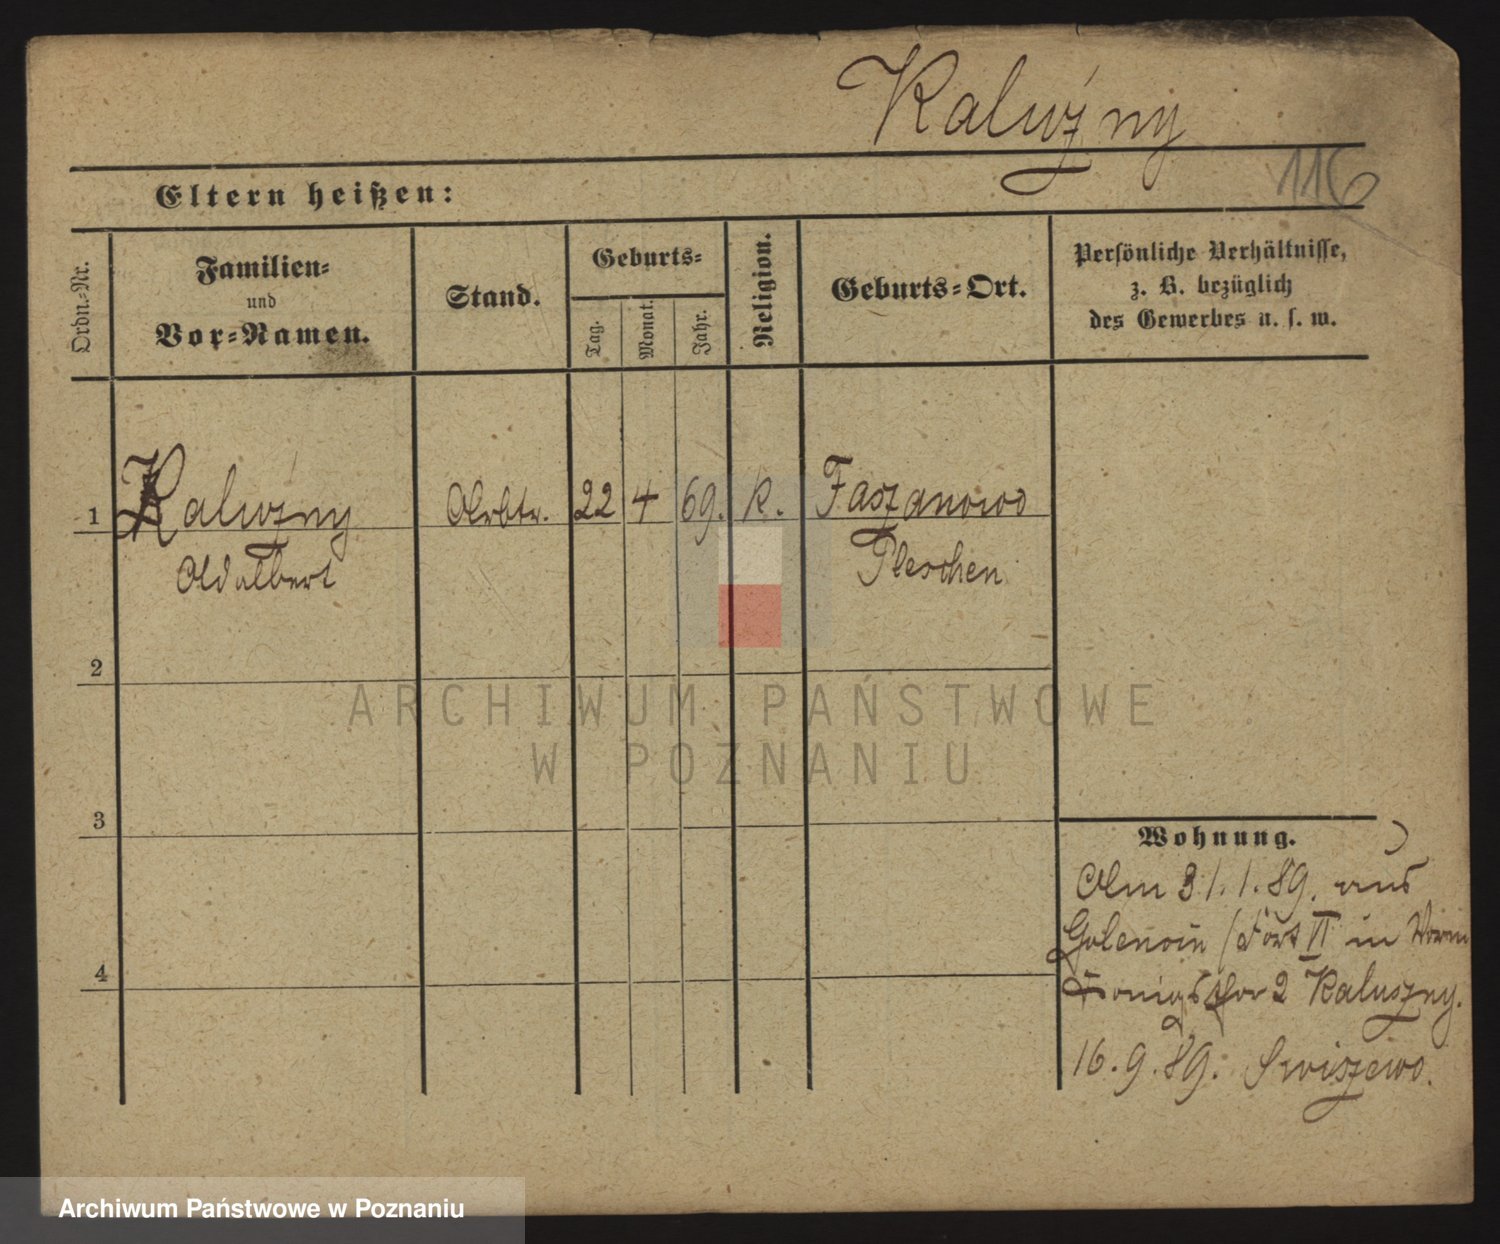 Kaluźny
116
Eltern heißen:
Ordn.-Nr.
Familien-
und
Vor-Namen.
Stand.
Geburts-
Tag.
Monat.
Jahr.
Religion.
Geburts-Ort.
Persönliche Verhältnisse,
z. B. bezüglich
des Gewerbes u. s. w.
1
Kaluźny
Adalbert
Arbtr.
22
4
69.
K.
Faszanowo
Pleschen
2
3
4
Wohnung.
Am 31.1.89. aus
Golencin (Fort VI in
Königsthor 2 Kaluszny.
16.9.89.
ARCHIWUM PAŃSTWOWE
W POZNANIU
Archiwum Państwowe w Poznaniu